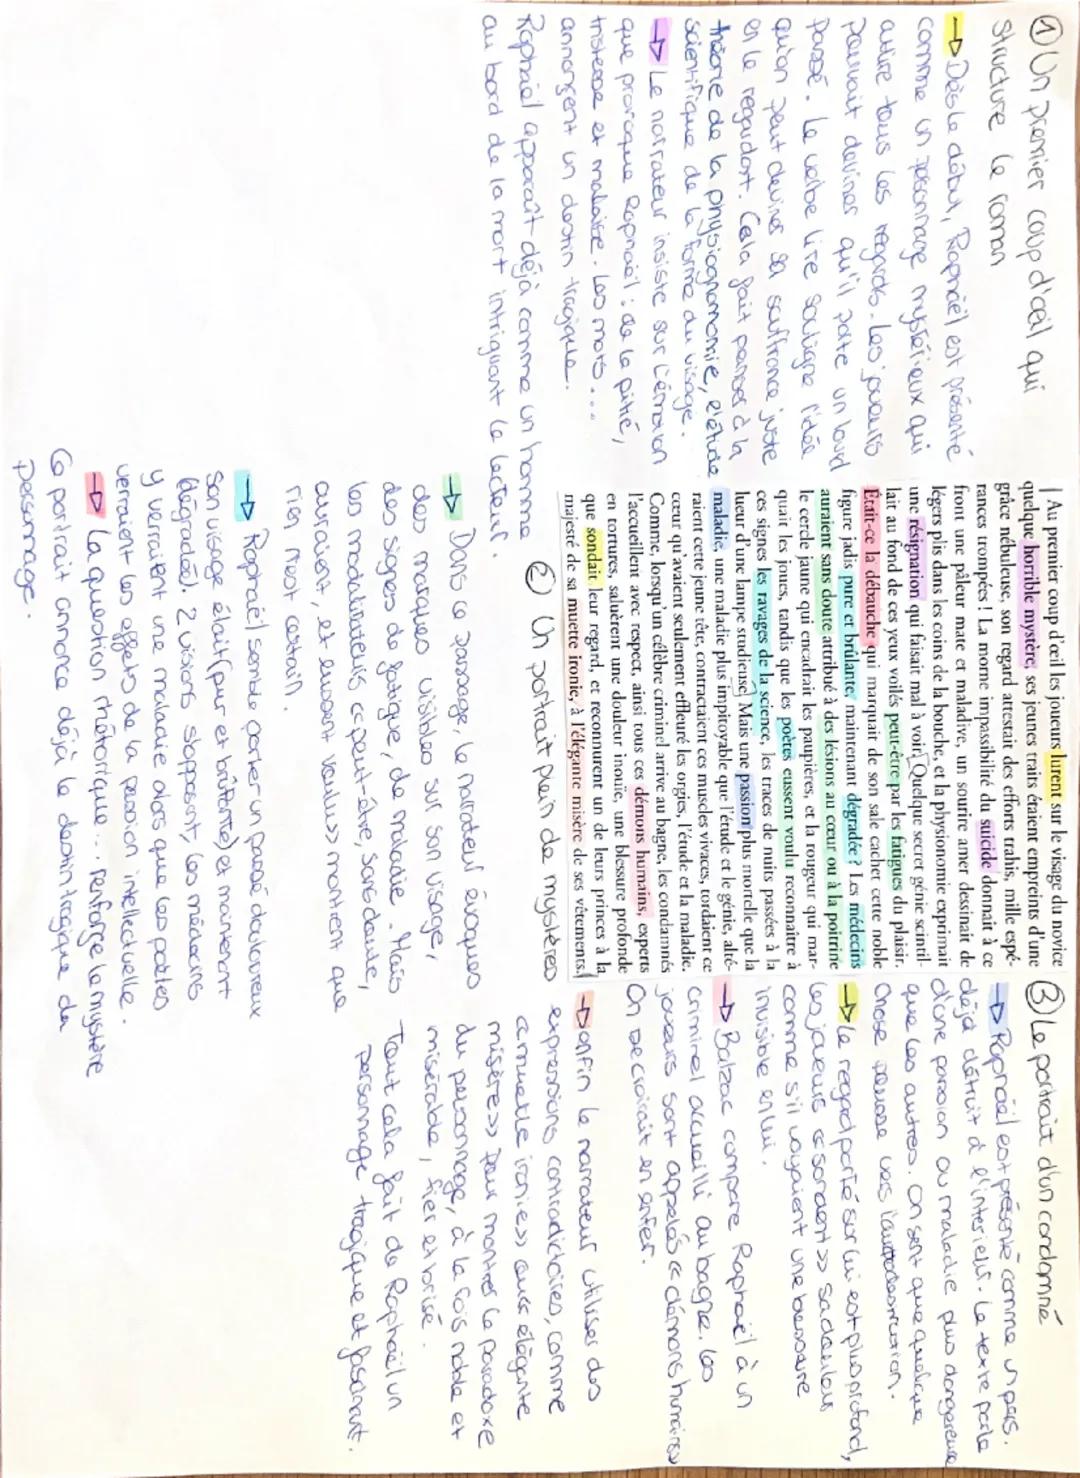 ① Un premier coup d'œil qui
structure le roman
→ Dès le début, Raphaël est présenté
comme un personnage mystérieux qui
attire tous les regards. Les joueurs
peuvait deviner qu'il porte un lourd
passé. Le verbe lire souligne l'idée
qu'on peut deviner sa souffrance juste
en le regardant. Cela fait penser à la
théorie de la physiognomonie, l'étude
scientifique de la forme du visage.
→ Le narrateur insiste sur l'émotion
que provoque Raphaël : de la pitié,
tristesse et malaise. Les mots ...
annonçent un destin tragique.
Raphaël apparaît déjà comme un homme
au bord de la mort intriguant le lecteur.
| Au premier coup d'œil les joueurs lurent sur le visage du novice
quelque horrible mystère, ses jeunes traits étaient empreints d'une
grâce nébuleuse, son regard attestait des efforts trahis, mille espé-
rances trompées ! La morne impassibilité du suicide donnait à ce
front une pâleur mate et maladive, un sourire amer dessinait de
légers plis dans les coins de la bouche, et la physionomie exprimait
une résignation qui faisait mal à voir. Quelque secret génie scintil-
lait au fond de ces yeux voilés peut-être par les fatigues du plaisir.
Était-ce la débauche qui marquait de son sale cachet cette noble
figure jadis pure et brûlante, maintenant dégradée ? Les médecins
auraient sans doute attribué à des lésions au cœur ou à la poitrine
le cercle jaune qui encadrait les paupières, et la rougeur qui mar-
quait les joues, tandis que les poètes eussent voulu reconnaître à
ces signes les ravages de la science, les traces de nuits passées à la
lueur d'une lampe studieuse. Mais une passion plus mortelle que la
maladie, une maladie plus impitoyable que l'étude et le génie, alté-
raient cette jeune tête, contractaient ces muscles vivaces, tordaient ce
cœur qu'avaient seulement effleuré les orgies, l'étude et la maladie.
Comme, lorsqu'un célèbre criminel arrive au bagne, les condamnés
l'accueillent avec respect, ainsi tous ces démons humains, experts
en tortures, saluèrent une douleur inouïe, une blessure profonde
que sondait leur regard, et reconnurent un de leurs princes à la
majesté de sa muette ironie, à l'élégante misère de ses vêtements.
② Un portrait plein de mystères
→ Dans ce passage, le narrateur évoques
des marques visibles sur son visage,
des signes de fatigue, de maladie. Mais
les modalisateurs « peut-être, sans doute,
auraient, et eussent voulu » montrent que
rien n'est certain.
→ Raphaël semble porter un passé douloureux
son visage était (pur et brûlante) et maintenant
(dégradée). 2 visions s'opposent, les médecins
y verraient une maladie alors que les poètes
verraient les effets de la passion intellectuelle.
→ La question rhétorique ... renforce le mystère
Ce portrait annonce déjà le destin tragique du
personnage.
③ Le portrait d'un condamné
→ Raphaël est présenté comme un pers.
déjà détruit à l'interieur. Le texte parle
d'une passion ou maladie plus dangereuse
que les autres. On sent que quelque
chose pousse vers l'autodestruction.
→ Le regard porté sur lui est plus profond,
les joueurs « sondent » sa douleur
comme s'il voyaient une blessure
invisible en lui.
→ Balzac compare Raphaël à un
criminel accueilli au bagne. les
joueurs sont appelés « démons humains »
On se croirait en enfer.
→ enfin le narrateur utiliser des
expressions contradictoires, comme
« muette ironie » ou « élégante
misère » pour montrer le paradoxe
du personnage, à la fois noble et
misérable, fier et brisé.
Tout cela fait de Raphaël un
personnage tragique et fascinant.